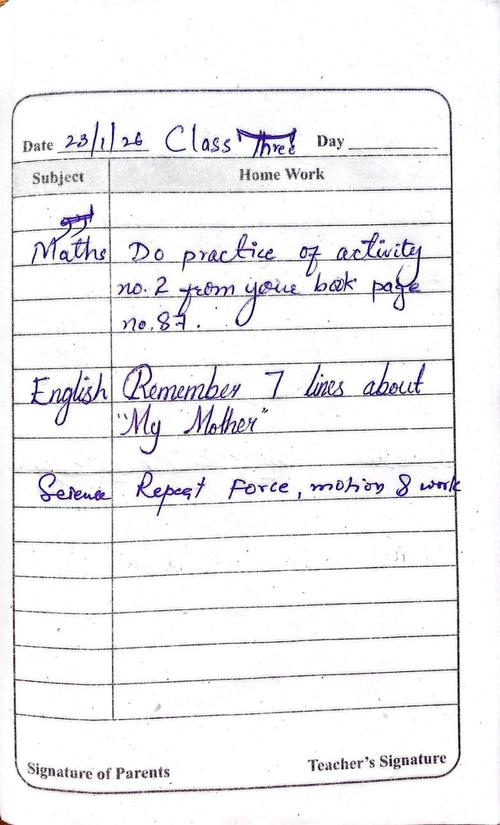 Date 23/1/26 Class Three Day
Subject Home Work
Maths Do practice of activity
no. 2 from your book page
no. 87.
English Remember 7 lines about
"My Mother"
Science Repeat Force, motion & work
Signature of Parents Teacher's Signature